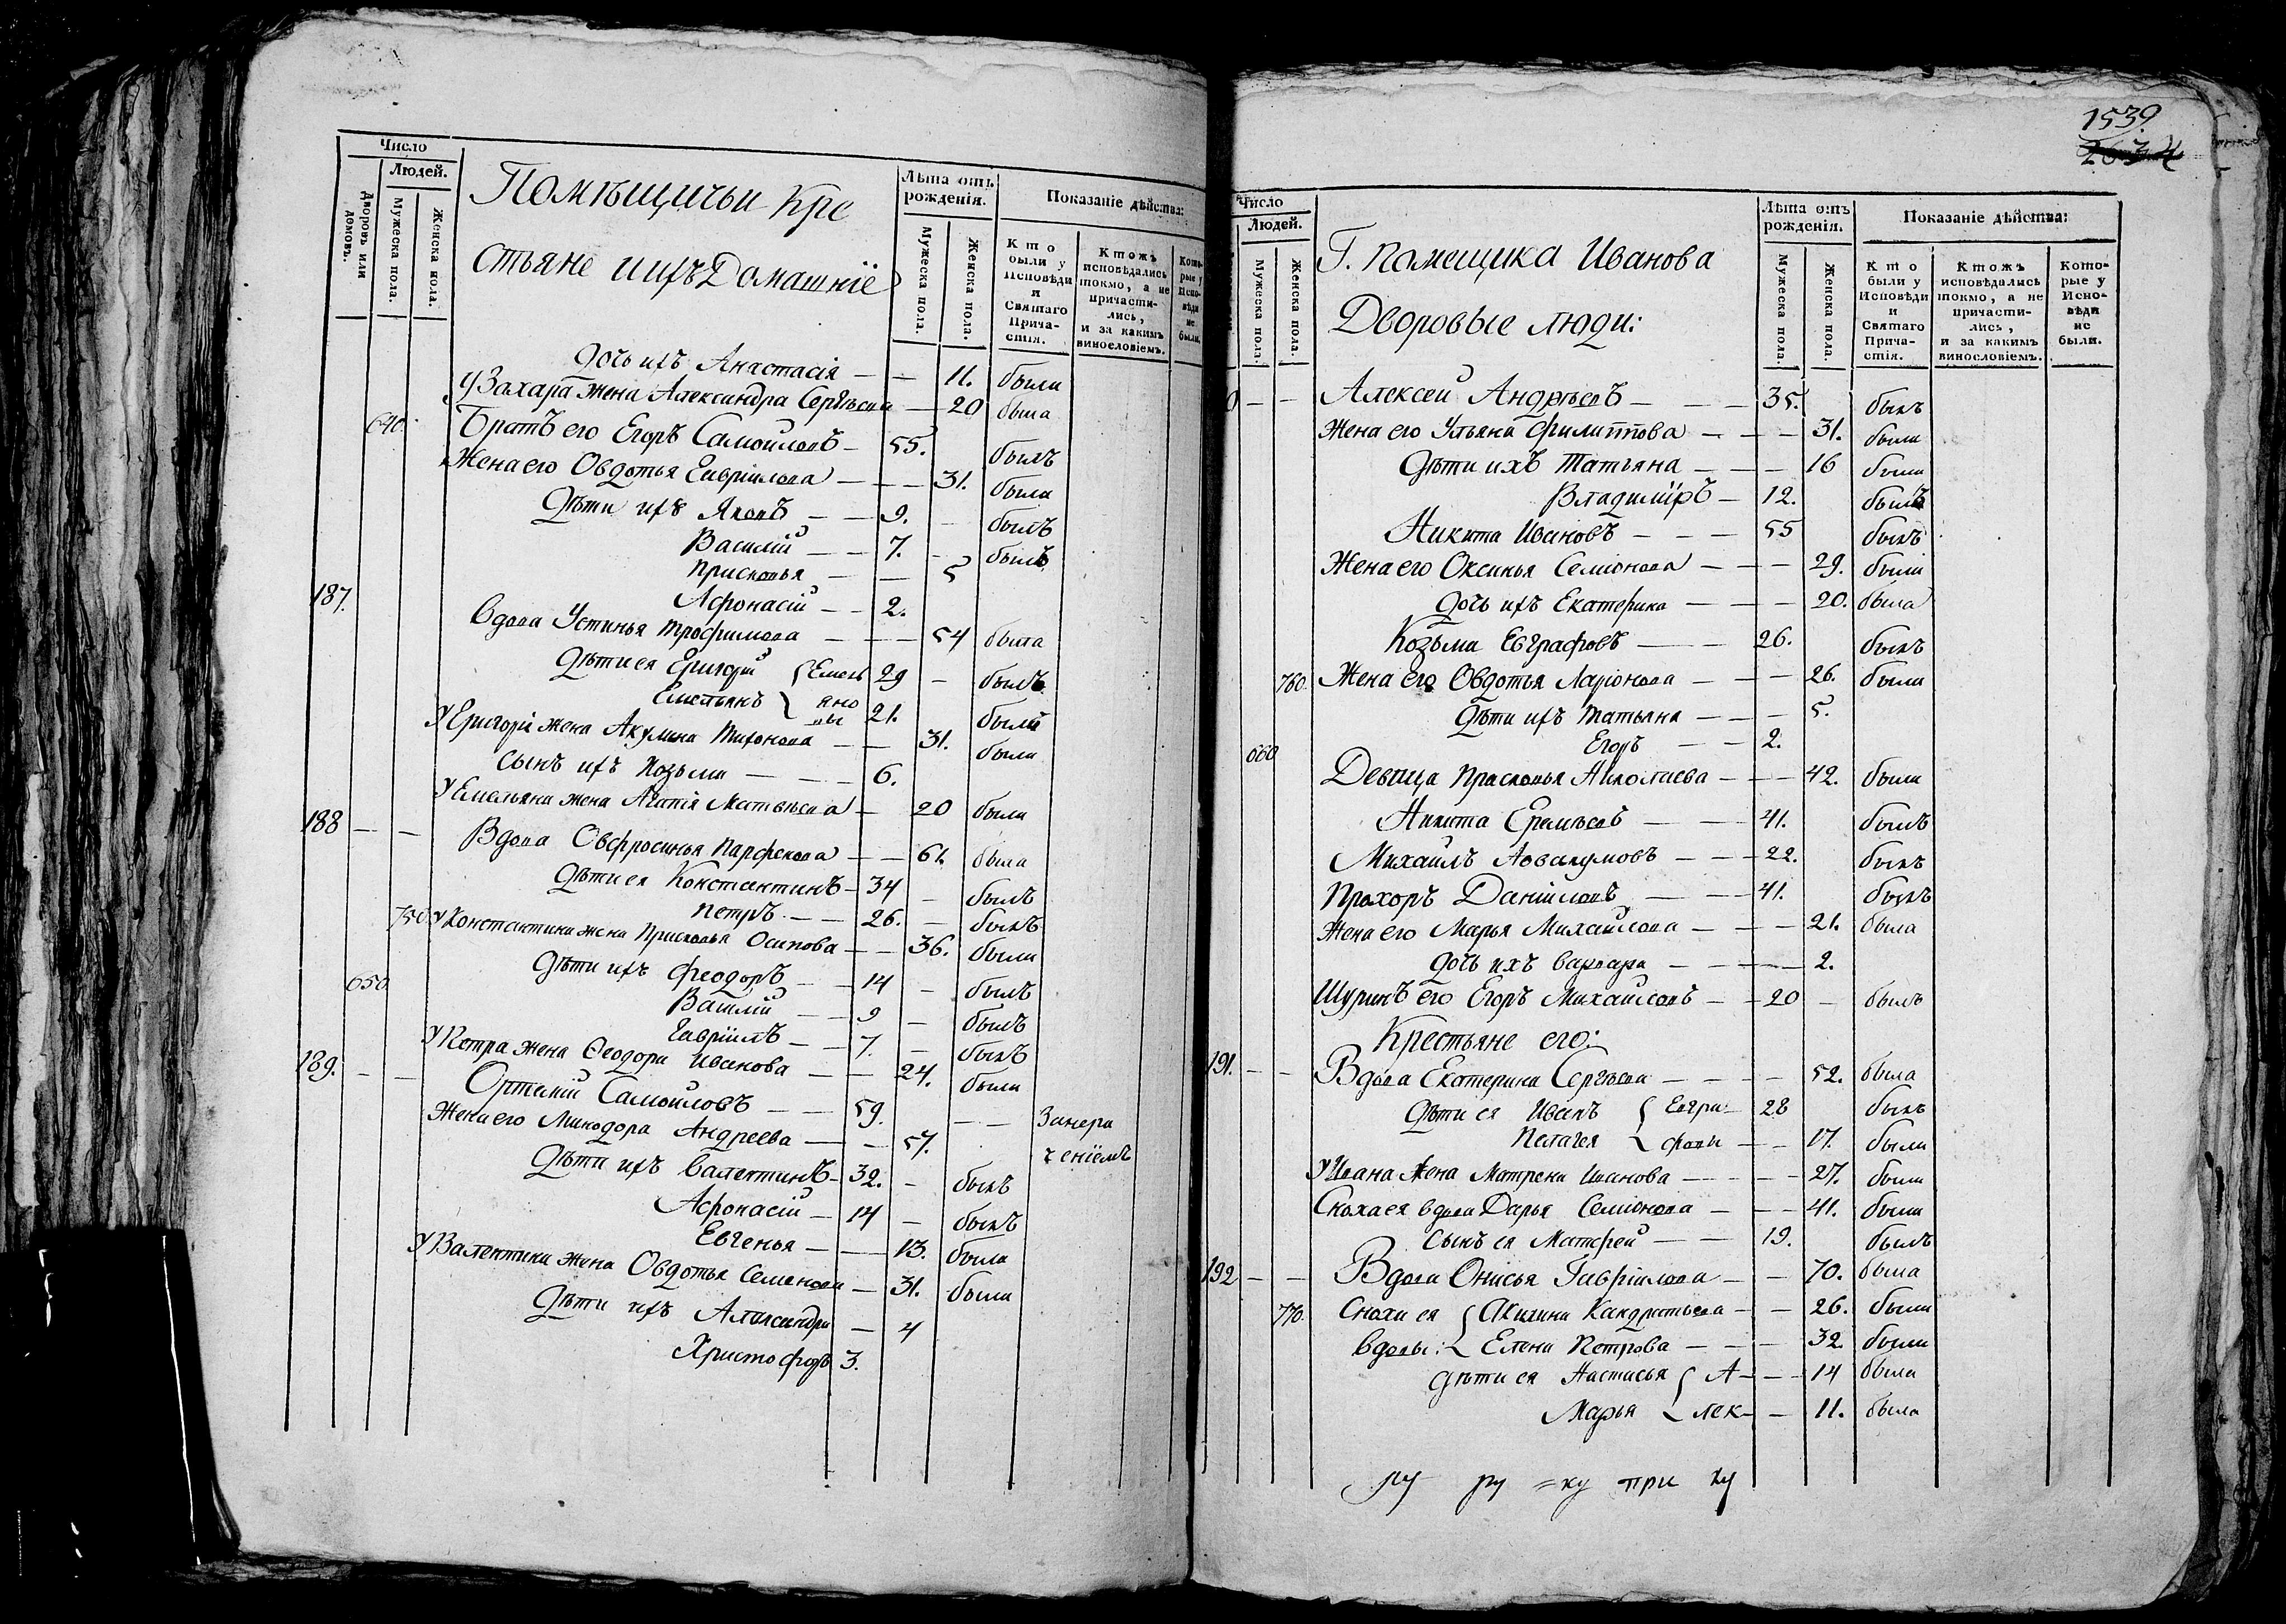 Число
Людей.
Дворовъ или домовъ.
Мужеска пола.
Женска пола.
Помѣщичьи Кре
стьяне и ихъ Домашніе
Лѣта отъ рожденія.
Мужеска пола.
Женска пола.
Показаніе дѣйства:
Кто были у Исповѣди и Святаго Причастія.
Ктожъ исповѣдались токмо, а не причастились, и за какимъ винословіемъ.
Которые у Исповѣди не были.
дочь ихъ Анастасія — — 11. была
У Захара жена Александра Сергѣева — 20 была
640. Братъ его Егоръ Самойловъ — 55. былъ
Жена его Овдотья Гаврiилова — — 31. была
Дѣти ихъ Яковъ — — 9. - былъ
Василій — — 7. - былъ
Присковья — — 5
Афонасій — — 2.
187.
Вдова Устинья Трофимова — — — 54 была
Дѣти ея Григорій { Емель 29 — былъ
Емельянъ { яно вы 21. былъ
У Григорія жена Акулина Тихонова — — 31. была
Сынъ ихъ Козьма — — — 6.
У Емельяна жена Агапія Матвѣева — 20 была
188 — —
Вдова Овфросинья Парфенова — — 61. была
Дѣти ея Константинъ — 34 — былъ
Петръ — — 26. — былъ
750. У Константина жена Присковья Осипова — — 36. была
Дѣти ихъ Феодоръ — — 14 — былъ
650. Василій — — 9 — былъ
Гавріилъ — — 7. — былъ
У Петра жена Ѳеодора Иванова — — 24. была
189. — —
Ортемій Самойловъ — — 59. — — Занера
Жена его Минодора Андреева — — 57. ченіемъ
Дѣти ихъ Валентинъ — 32. — былъ
Афонасій — 14 — былъ
Евгенья — — 13. была
У Валентина жена Овдотья Семенова — 31. была
Дѣти ихъ Александра — 4
Христофоръ 3.
1539
Число
Людей.
Мужеска пола.
Женска пола.
Г. Помещика Иванова
Дворовые люди:
Лѣта отъ рожденія.
Мужеска пола.
Женска пола.
Показаніе дѣйства:
Кто были у Исповѣди и Святаго Причастія.
Ктожъ исповѣдались токмо, а не причастились, и за какимъ винословіемъ.
Которые у Исповѣди не были.
0 — — Алексей Андреевъ — — — 35. былъ
Жена его Ульяна Филиппова — — — 31. была
Дѣти ихъ Татьяна — — — 16 была
Владиміръ — 12. былъ
Никита Ивановъ — — — 55 былъ
Жена его Оксинья Семіонова — — — 29. была
дочь ихъ Екатерина — — — 20. была
Козьма Евграфовъ — — 26. былъ
760. Жена его Овдотья Ларіонова — — — 26. была
Дѣти ихъ Татьяна — — — 5.
660 Егоръ — — 2.
Девица Прасковья Николаева — — — 42. была
Никита Еремѣевъ — — 41. былъ
Михаилъ Аввакумовъ — — — 22. былъ
Прохоръ Даніиловъ — — — 41. былъ
Жена его Марья Михайлова — — — 21. была
дочь ихъ Варвара — — — — 2.
Шуринъ его Егоръ Михайловъ — — 20 — былъ
Крестьяне его:
191. — — Вдова Екатерина Сергѣева — — — — 52. была
Дѣти ея Иванъ { Евгра- 28 былъ
Пелагея { фовы — — 17. была
У Ивана жена Матрена Иванова — — — — 27. была
Сноха ея вдова Дарья Семіонова — — — 41. была
Сынъ ея Матфей — — 19. былъ
192 — — Вдова Онисья Гавріилова — — 70. была
770. Снохи ея { Акилина Кандратьева — — 26. была
вдовы: { Елена Петрова — — — 32. была
Дѣти ея Настасья { А — — 14 была
Марья { лек — — 11. была
ру ру =ку при ку